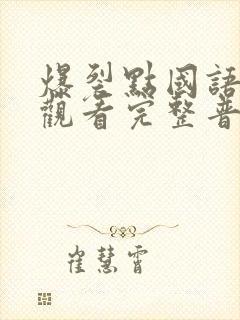 爆裂點國語
觀看完整普
崔慧霄